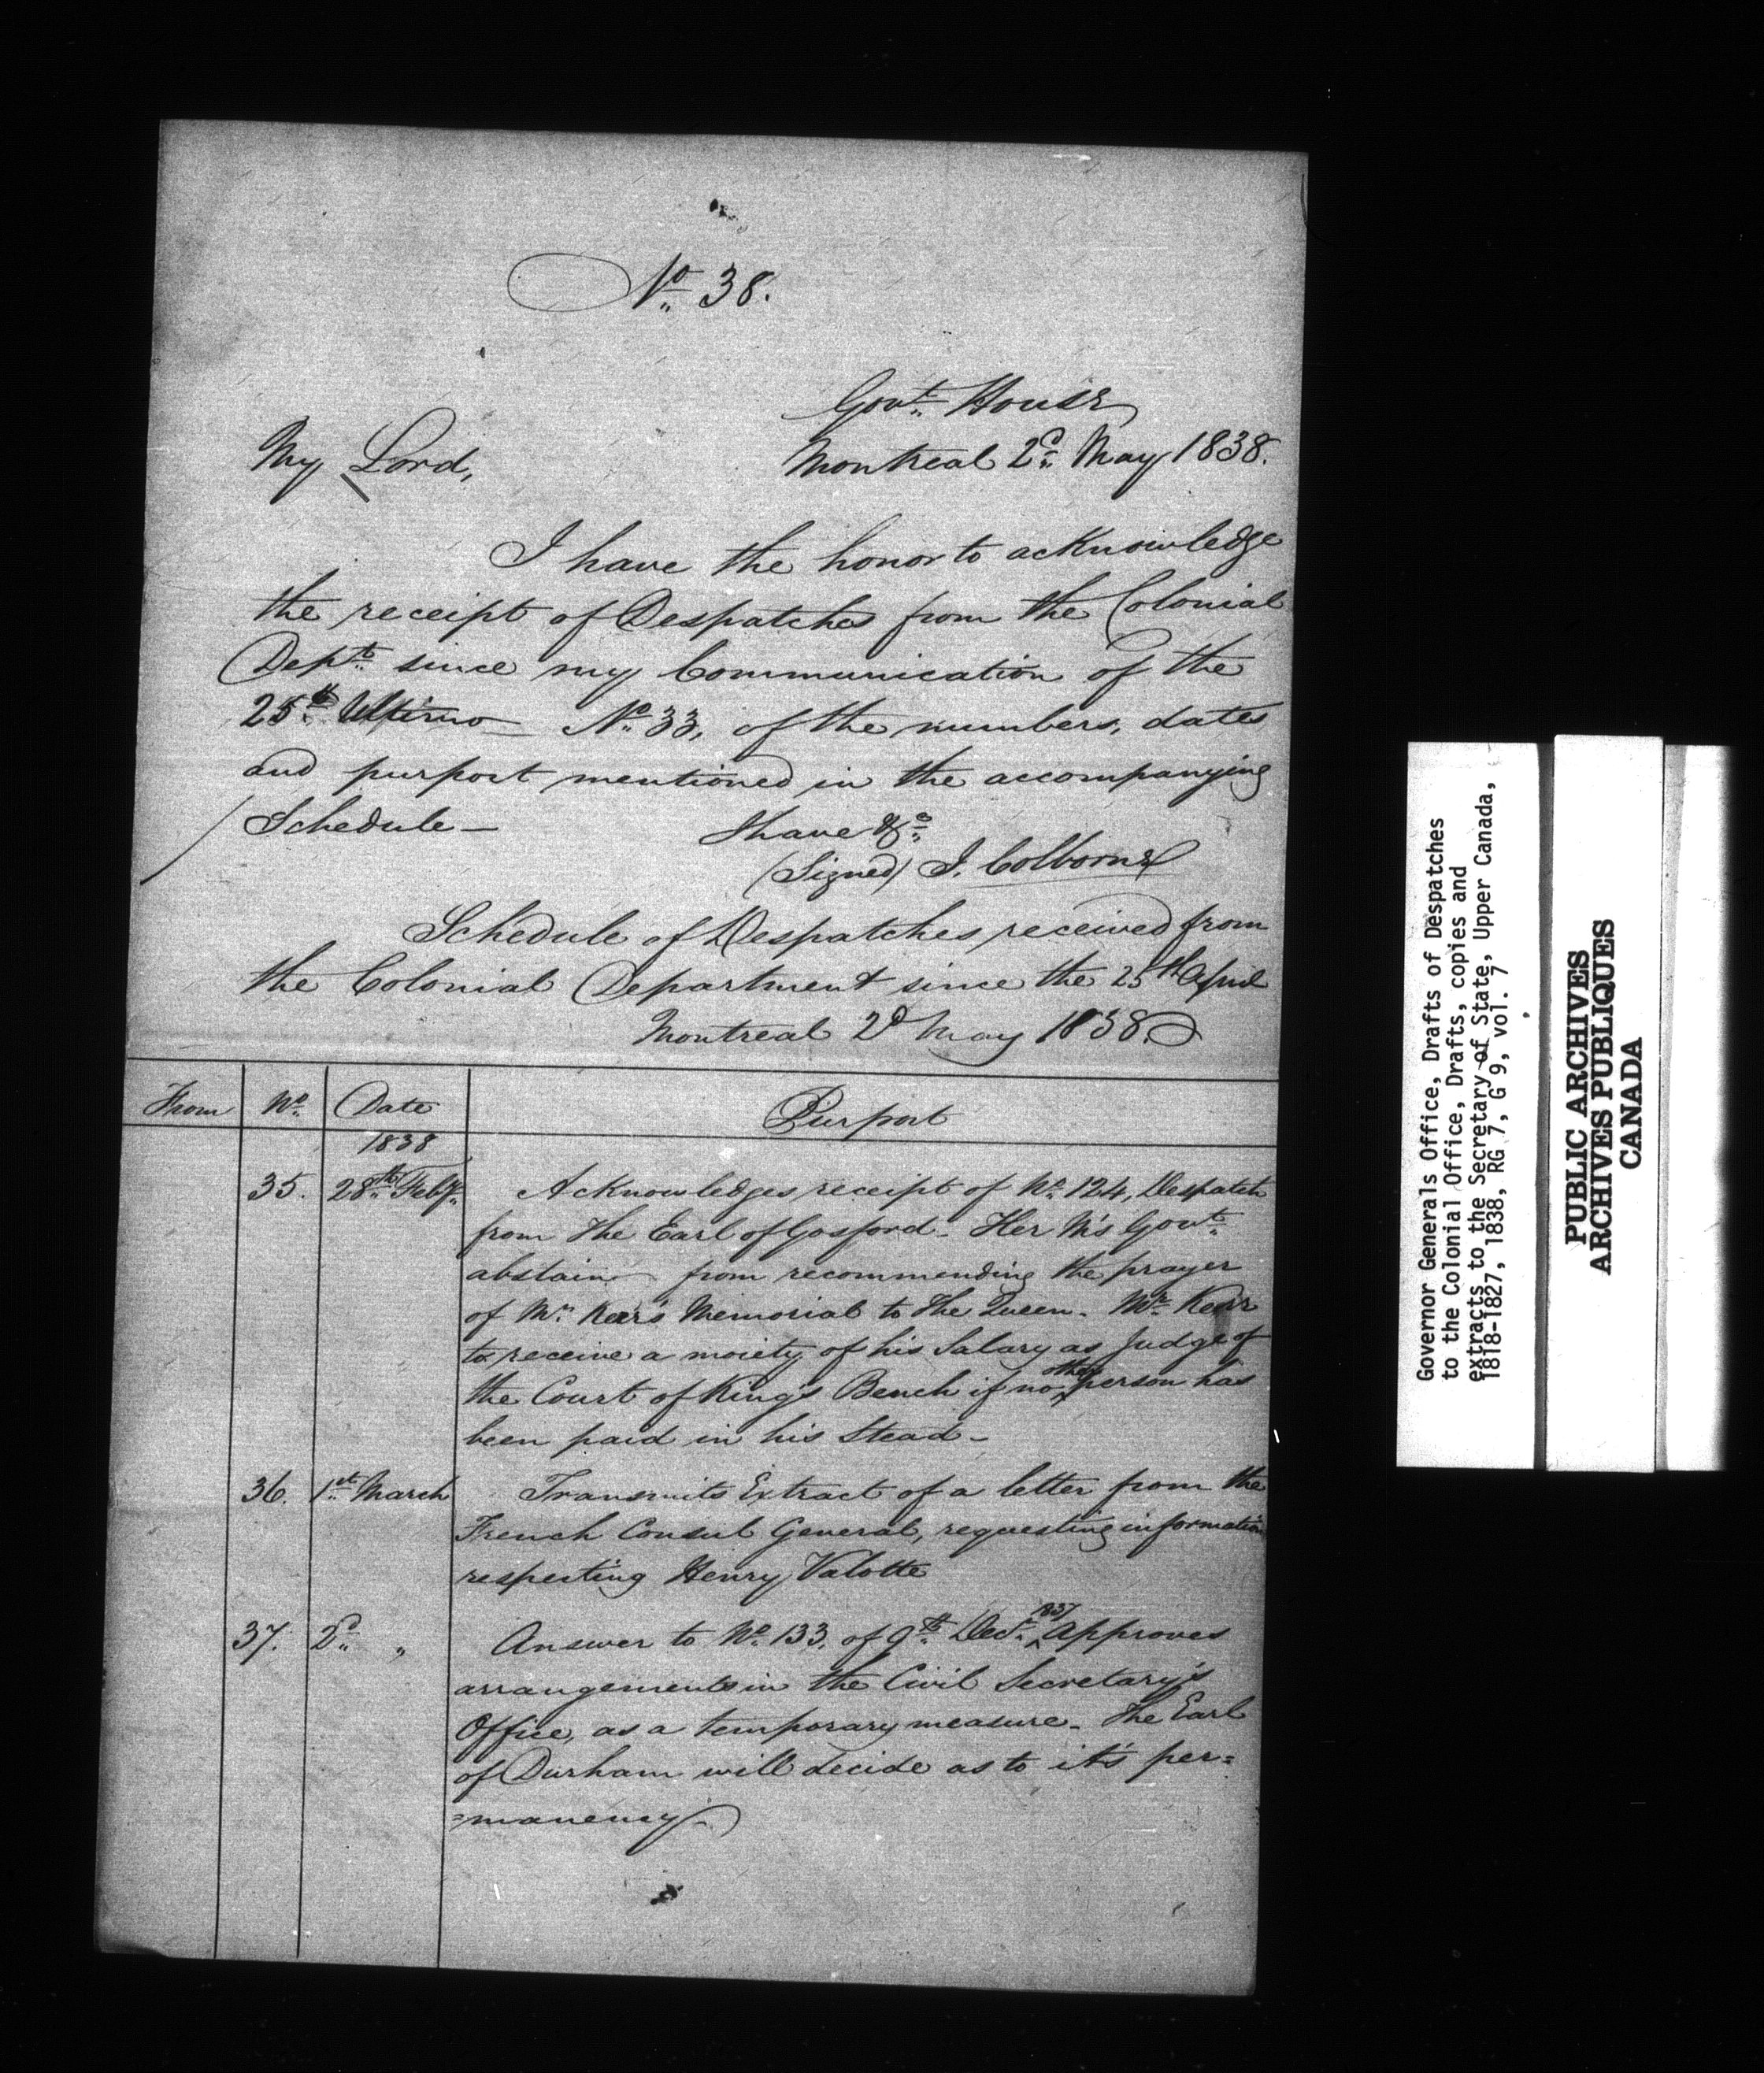 No. 38.
Govt. House
My Lord,
Montreal 2d. May 1838.
I have the honor to acknowledge
the receipt of Despatches from the Colonial
Dept. since my Communication of the
25th. Ultimo No. 33, of the numbers, dates
and purport mentioned in the accompanying
Schedule—
I have &c.
(Signed) J. Colborne
Schedule of Despatches received from
the Colonial Department since the 25th April
Montreal 2d May 1838.
From No. Date Purport
1838
35. 28th. Feby. Acknowledges receipt of No. 124, Despatch
from The Earl of Gosford. Her M's Govt.
abstain from recommending the prayer
of Mr. Kerr's Memorial to the Queen. Mr. Kerr
to receive a moiety of his Salary as Judge of
the Court of King's Bench if no other person has
been paid in his Stead—
36. 1st. March Transmits Extract of a letter from the
French Consul General, requesting information
respecting Henry Valotte
37. 2d. „ Answer to No. 133, of 9th. Decr. 1837 Approves
arrangements in the Civil Secretary's
Office, as a temporary measure. The Earl
of Durham will decide as to it's per=
=manency.
Governor Generals Office, Drafts of Despatches
to the Colonial Office, Drafts, copies and
extracts to the Secretary of State, Upper Canada,
1818-1827, 1838, RG 7, G 9, vol. 7
PUBLIC ARCHIVES
ARCHIVES PUBLIQUES
CANADA